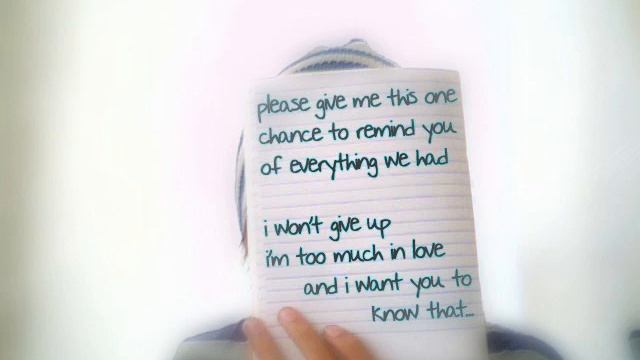 please give me this one
chance to remind you
of everything we had
i won't give up
i'm too much in love
and i want you to
know that...